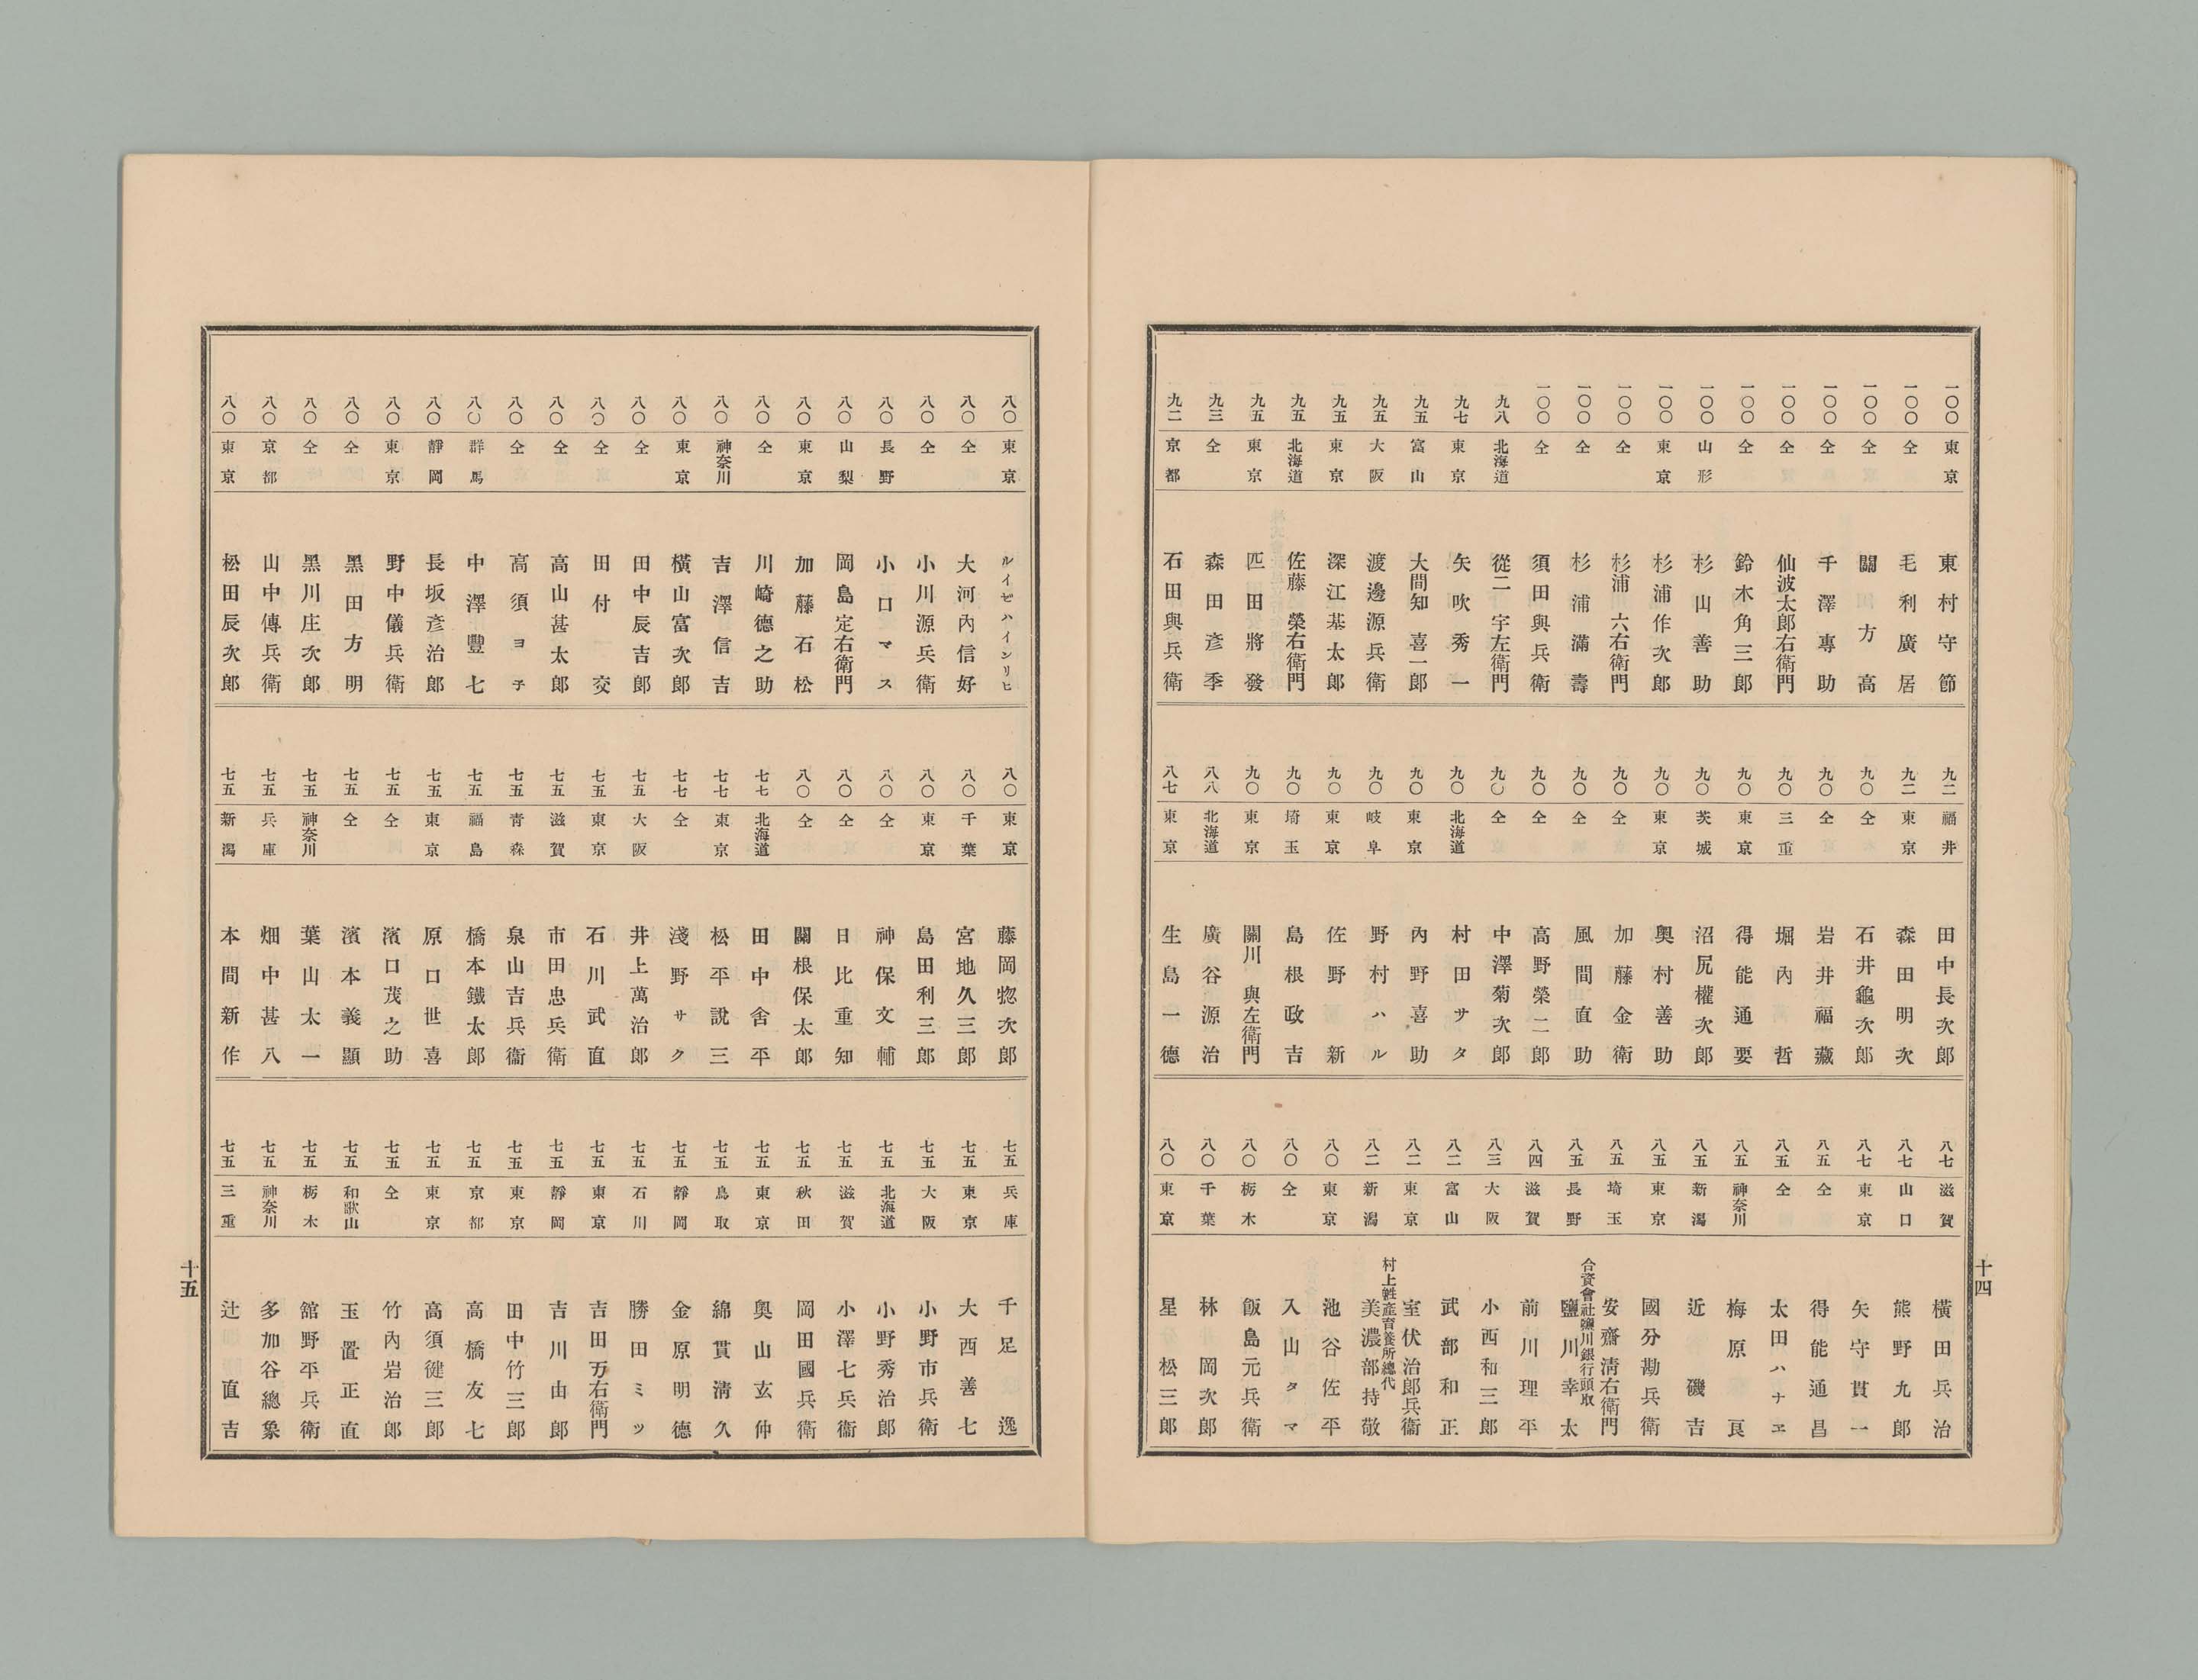 一〇〇 東京 東村守節
一〇〇 仝 毛利廣居
一〇〇 仝 關方高
一〇〇 仝 千澤專助
一〇〇 仝 仙波太郎右衛門
一〇〇 仝 鈴木角三郎
一〇〇 山形 杉山善助
一〇〇 東京 杉浦作次郎
一〇〇 仝 杉浦六右衛門
一〇〇 仝 杉浦滿壽
一〇〇 仝 須田與兵衛
九八 北海道 從二宇左衛門
九七 東京 矢吹秀一
九五 富山 大間知喜一郎
九五 大阪 渡邊源兵衛
九五 東京 深江基太郎
九五 北海道 佐藤榮右衛門
九五 東京 匹田將發
九三 仝 森田彦季
九二 京都 石田與兵衛
九二 福井 田中長次郎
九二 東京 森田明次
九〇 仝 石井龜次郎
九〇 仝 岩井福藏
九〇 三重 堀內哲
九〇 東京 得能通要
九〇 茨城 沼尻權次郎
九〇 東京 奧村善助
九〇 仝 加藤金衛
九〇 仝 風間直助
九〇 仝 高野榮二郎
九〇 仝 中澤菊次郎
九〇 北海道 村田サタ
九〇 東京 內野喜助
九〇 岐阜 野村ハル
九〇 東京 佐野新
九〇 埼玉 島根政吉
九〇 東京 關川與左衛門
八八 北海道 廣谷源治
八七 東京 生島一德
八七 滋賀 橫田兵治
八七 山口 熊野九郎
八七 東京 矢守貫一
八五 仝 得能通昌
八五 仝 太田ハナヱ
八五 神奈川 梅原良
八五 新潟 近磯吉
八五 東京 國分勘兵衛
八五 埼玉 安齋淸右衛門
八五 長野 合資會社鹽川銀行頭取 鹽川幸太
八四 滋賀 前川理平
八三 大阪 小西和三郎
八二 富山 武部和正
八二 東京 室伏治郎兵衞
八二 新潟 村上鮭產育養所總代 美濃部持敬
八〇 東京 池谷佐平
八〇 仝 入山タマ
八〇 栃木 飯島元兵衛
八〇 千葉 林岡次郎
八〇 東京 星松三郎
十四
八〇 東京 ルイゼハインリヒ
八〇 仝 大河內信好
八〇 仝 小川源兵衛
八〇 長野 小口マス
八〇 山梨 岡島定右衛門
八〇 東京 加藤石松
八〇 仝 川崎德之助
八〇 神奈川 吉澤信吉
八〇 東京 橫山富次郎
八〇 仝 田中辰吉郎
八〇 仝 田付一交
八〇 仝 高山甚太郎
八〇 仝 高須ヨチ
八〇 群馬 中澤豐七
八〇 靜岡 長坂彦治郎
八〇 東京 野中儀兵衛
八〇 仝 黑田方明
八〇 仝 黑川庄次郎
八〇 京都 山中傳兵衛
八〇 東京 松田辰次郎
八〇 東京 藤岡惣次郎
八〇 千葉 宮地久三郎
八〇 東京 島田利三郎
八〇 仝 神保文輔
八〇 仝 日比重知
八〇 仝 關根保太郎
七七 北海道 田中舍平
七七 東京 松平說三
七七 仝 淺野サク
七五 大阪 井上萬治郎
七五 東京 石川武直
七五 滋賀 市田忠兵衛
七五 靑森 泉山吉兵衞
七五 福島 橋本鐵太郎
七五 東京 原口世喜
七五 仝 濱口茂之助
七五 仝 濱本義顯
七五 神奈川 葉山太一
七五 兵庫 畑中甚八
七五 新潟 本間新作
七五 兵庫 千足逸
七五 東京 大西善七
七五 大阪 小野市兵衛
七五 北海道 小野秀治郎
七五 滋賀 小澤七兵衞
七五 秋田 岡田國兵衛
七五 東京 奧山玄仲
七五 鳥取 綿貫淸久
七五 靜岡 金原明德
七五 石川 勝田ミツ
七五 東京 吉田万右衛門
七五 靜岡 吉川由郎
七五 東京 田中竹三郎
七五 京都 高橋友七
七五 東京 高須徤三郎
七五 仝 竹內岩治郎
七五 和歌山 玉置正直
七五 栃木 舘野平兵衛
七五 神奈川 多加谷總象
七五 三重 辻直吉
十五